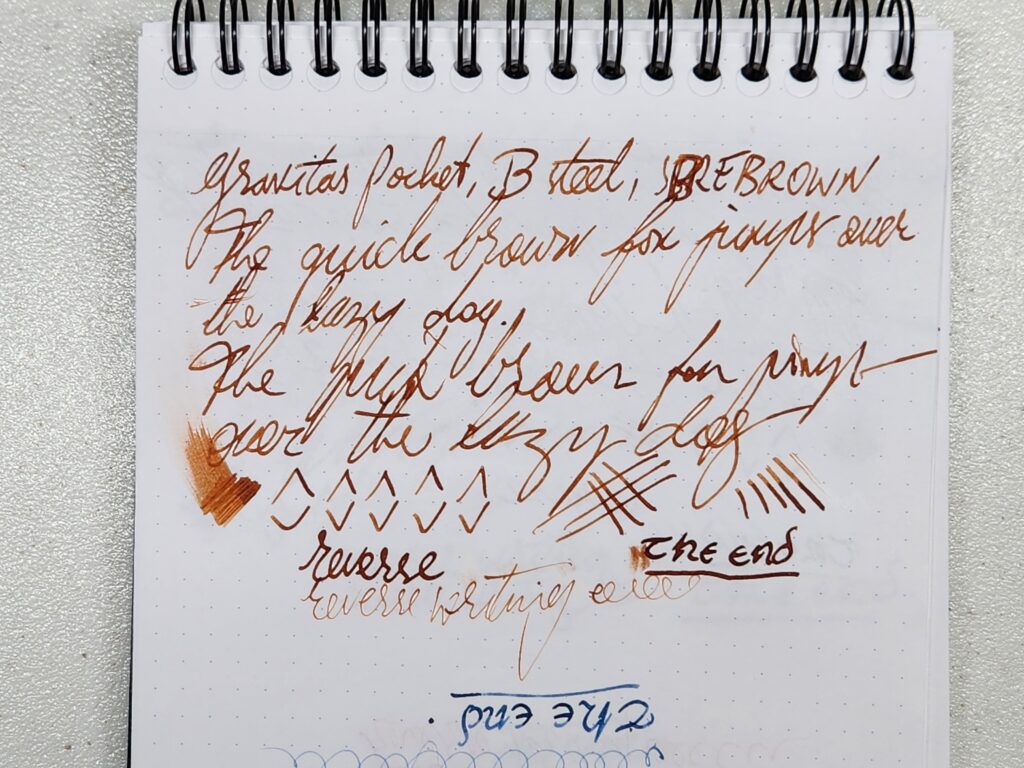 Gravitas Pocket, B steel, SBREBROWN
The quick brown fox jumps over
the lazy dog.
The quick brown fox jumps
over the lazy dog
reverse
The end
reverse writing
The end